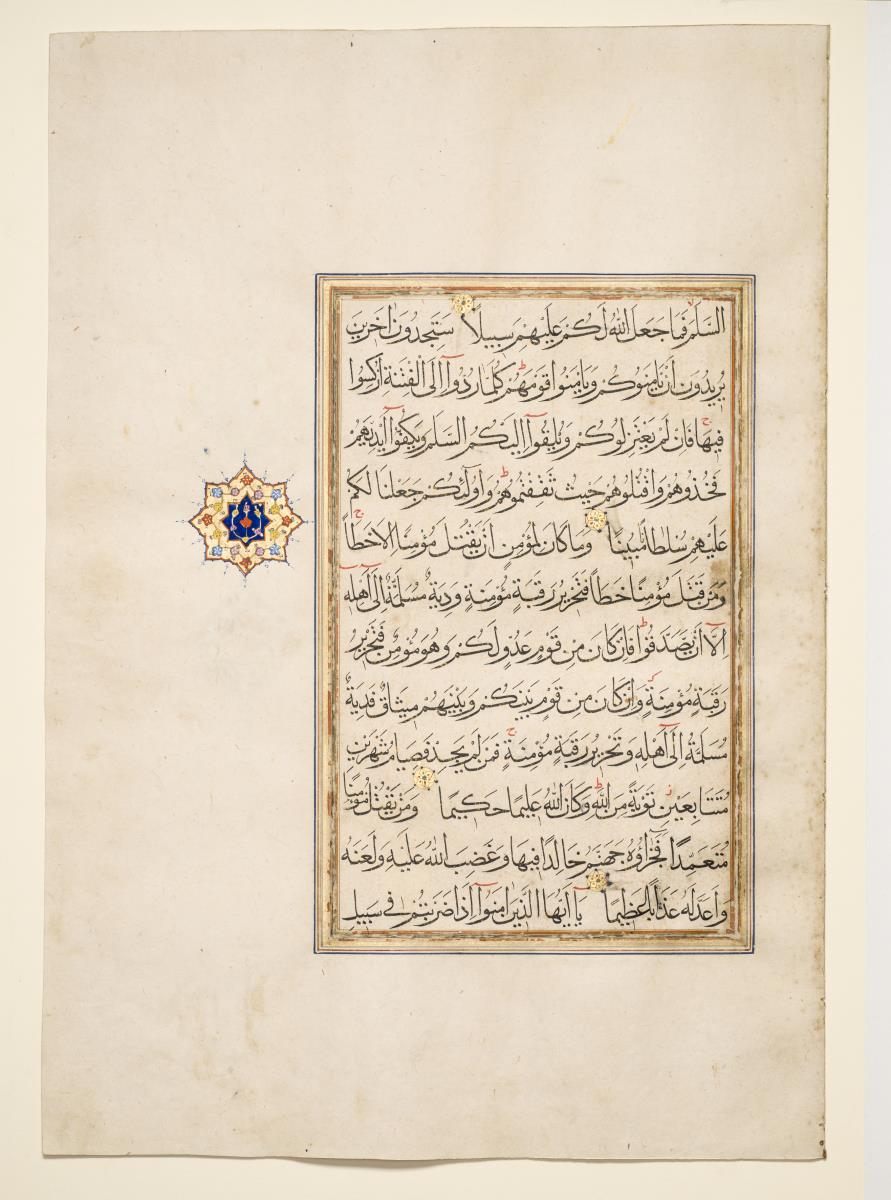 السَّلَمَ فَمَا جَعَلَ اللهُ لَكُمْ عَلَيْهِمْ سَبِيلًا سَتَجِدُونَ اٰخَرِينَ
يُرِيدُونَ اَنْ يَأْمَنُوكُمْ وَيَأْمَنُوا قَوْمَهُمْ كُلَّمَا رُدُّوا اِلَى الْفِتْنَةِ اُرْكِسُوا
فِيهَا فَاِنْ لَمْ يَعْتَزِلُوكُمْ وَيُلْقُوا اِلَيْكُمُ السَّلَمَ وَيَكُفُّوا اَيْدِيَهُمْ
فَخُذُوهُمْ وَاقْتُلُوهُمْ حَيْثُ ثَقِفْتُمُوهُمْ وَاُولٰئِكُمْ جَعَلْنَا لَكُمْ
عَلَيْهِمْ سُلْطَانًا مُبِينًا وَمَا كَانَ لِمُؤْمِنٍ اَنْ يَقْتُلَ مُؤْمِنًا اِلَّا خَطَأً
وَمَنْ قَتَلَ مُؤْمِنًا خَطَأً فَتَحْرِيرُ رَقَبَةٍ مُؤْمِنَةٍ وَدِيَةٌ مُسَلَّمَةٌ اِلٰى اَهْلِهِ
اِلَّا اَنْ يَصَّدَّقُوا فَاِنْ كَانَ مِنْ قَوْمٍ عَدُوٍّ لَكُمْ وَهُوَ مُؤْمِنٌ فَتَحْرِيرُ
رَقَبَةٍ مُؤْمِنَةٍ وَاِنْ كَانَ مِنْ قَوْمٍ بَيْنَكُمْ وَبَيْنَهُمْ مِيثَاقٌ فَدِيَةٌ
مُسَلَّمَةٌ اِلٰى اَهْلِهِ وَتَحْرِيرُ رَقَبَةٍ مُؤْمِنَةٍ فَمَنْ لَمْ يَجِدْ فَصِيَامُ شَهْرَيْنِ
مُتَتَابِعَيْنِ تَوْبَةً مِنَ اللهِ وَكَانَ اللهُ عَلِيمًا حَكِيمًا وَمَنْ يَقْتُلْ مُؤْمِنًا
مُتَعَمِّدًا فَجَزَاؤُهُ جَهَنَّمُ خَالِدًا فِيهَا وَغَضِبَ اللهُ عَلَيْهِ وَلَعَنَهُ
وَاَعَدَّ لَهُ عَذَابًا عَظِيمًا يَا اَيُّهَا الَّذِينَ اٰمَنُوا اِذَا ضَرَبْتُمْ فِي سَبِيلِ